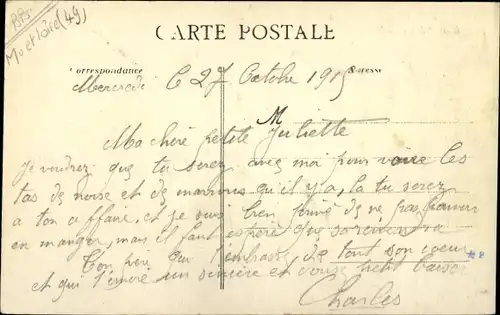 M et Loire (49)
CARTE POSTALE
Correspondance
Adresse
Mercredi Le 27 Octobre 1915
M
Ma chère petite Juliette
je voudrez que tu serez avec moi pour voire les
tas de noise et de marrons qu'il y a, la tu serez
a ton affaire, et je suis bien privé de ne pas pouvoir
en manger, mais il faut espere que sa reviendra
Ton père qui t'embrasse de tout son coeur
et qui t'envoie un sincère et doux petit baiser
Charles